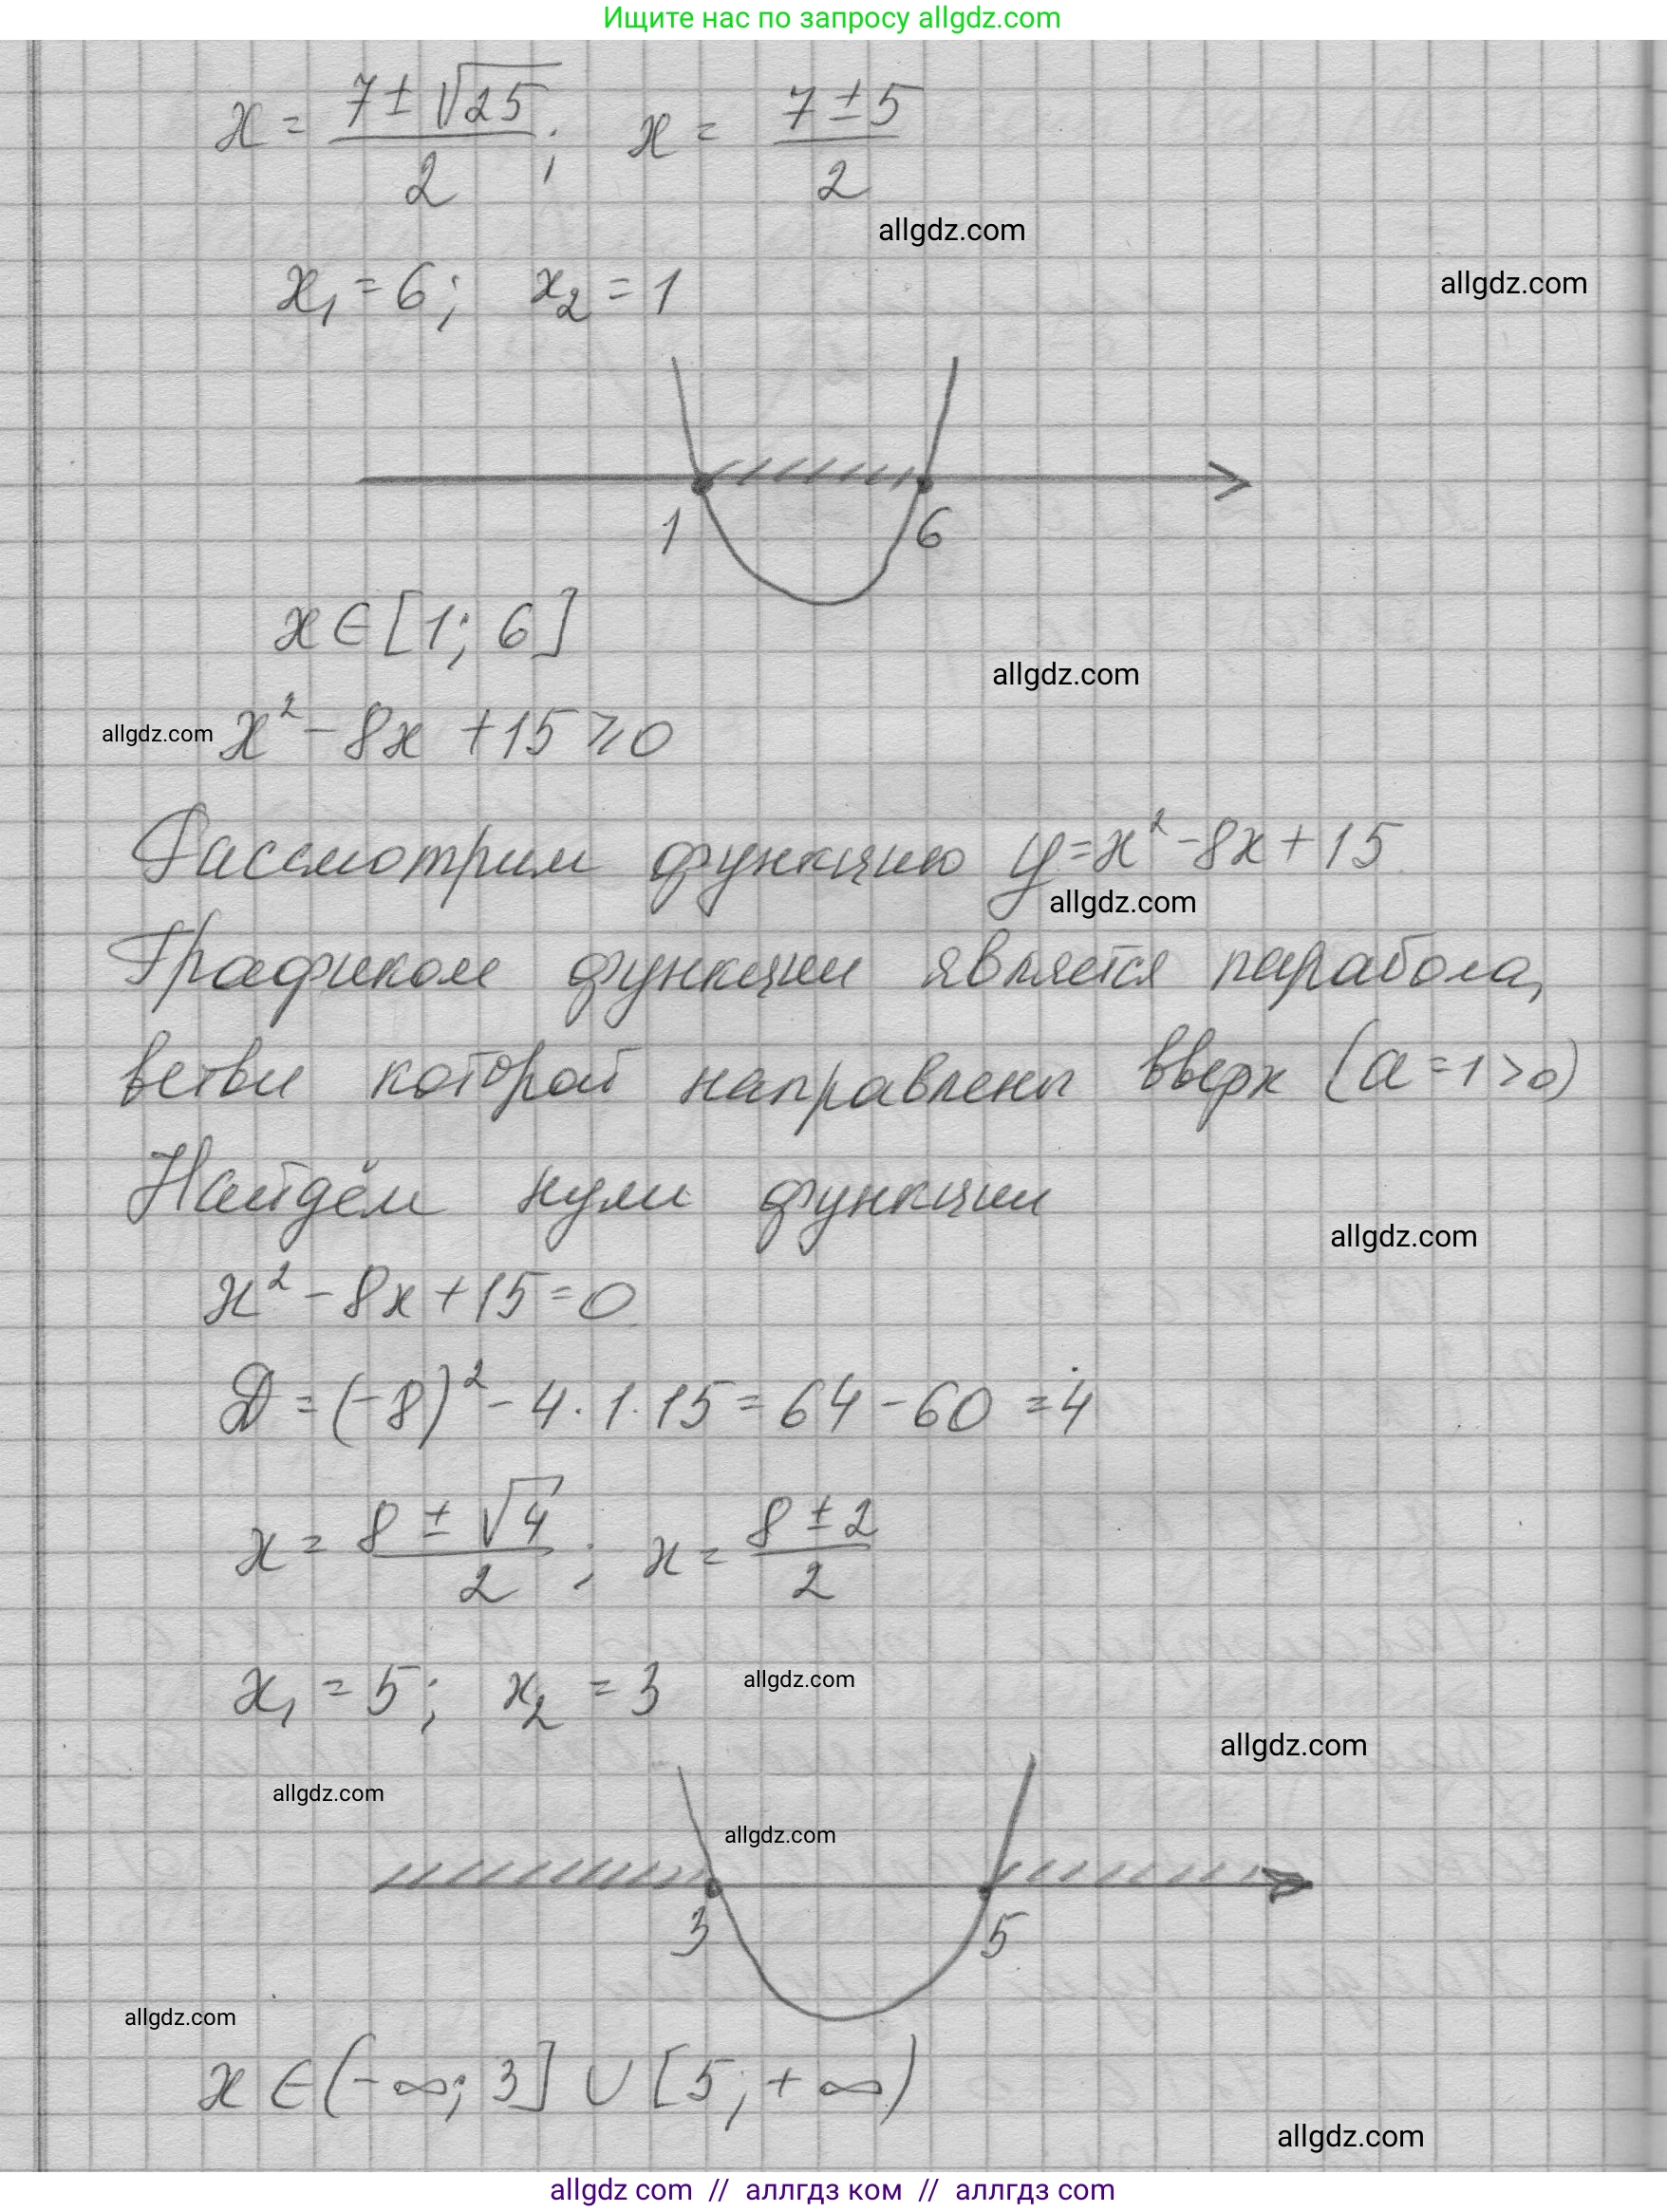 Ищите нас по запросу allgdz.com
x = (7 ± √25)/2 ; x = (7 ± 5)/2
allgdz.com
x₁ = 6; x₂ = 1
allgdz.com
1 6
x ∈ [1; 6]
allgdz.com
allgdz.com
x² - 8x + 15 ⩾ 0
Рассмотрим функцию y = x² - 8x + 15
allgdz.com
Графиком функции является парабола,
ветви которой направлены вверх (a = 1 > 0)
Найдём нули функции
allgdz.com
x² - 8x + 15 = 0
D = (-8)² - 4 · 1 · 15 = 64 - 60 = 4
x = (8 ± √4)/2 ; x = (8 ± 2)/2
x₁ = 5; x₂ = 3
allgdz.com
allgdz.com
allgdz.com
allgdz.com
3 5
allgdz.com
x ∈ (-∞; 3] ∪ [5; +∞)
allgdz.com
allgdz com // аллгдз ком // аллгдз com